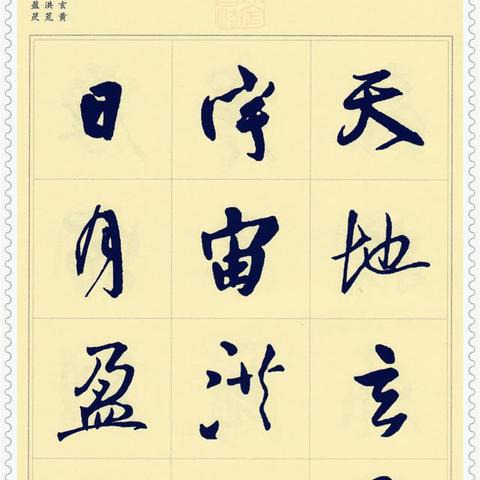 玄黄
洪荒
盈昃
天地玄
宇宙洪
日月盈